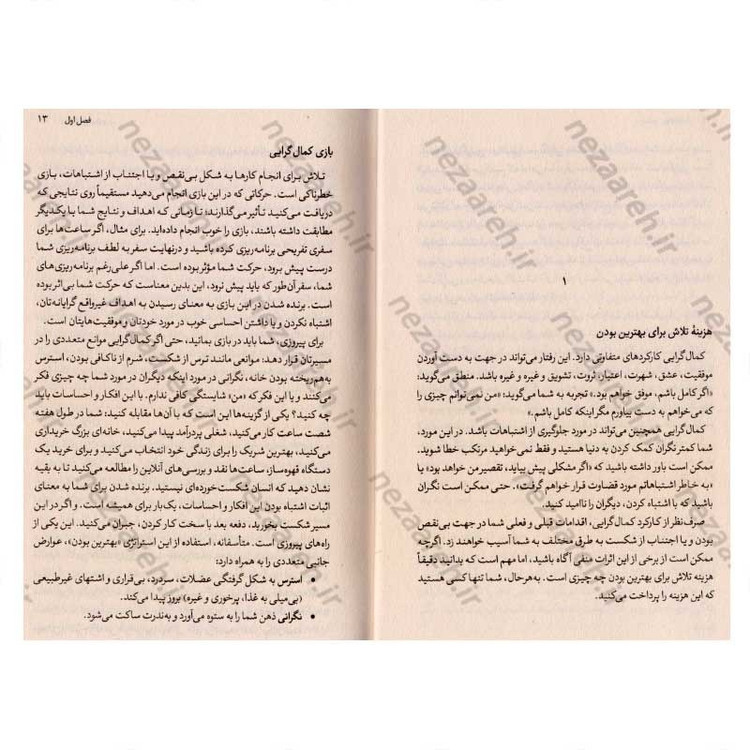 ۱
هزینهٔ تلاش برای بهترین بودن
کمال‌گرایی کارکردهای متفاوتی دارد. این رفتار می‌تواند در جهت به دست آوردن
موفقیت، عشق، شهرت، اعتبار، ثروت، تشویق و غیره و غیره باشد. منطق می‌گوید:
«اگر کامل باشم، موفق خواهم بود.» تجربه به شما می‌گوید: «من نمی‌توانم چیزی را
که می‌خواهم به دست بیاورم مگر اینکه کامل باشم.»
کمال‌گرایی همچنین می‌تواند در مورد جلوگیری از اشتباهات باشد. در این مورد،
شما کمتر نگران کمک کردن به دنیا هستید و فقط نمی‌خواهید مرتکب خطا شوید.
ممکن است باور داشته باشید که «اگر مشکلی پیش بیاید، تقصیر من خواهد بود» یا
«به خاطر اشتباهاتم مورد قضاوت قرار خواهم گرفت». حتی ممکن است نگران
باشید که با اشتباه کردن، دیگران را ناامید کنید.
صرف‌نظر از کارکرد کمال‌گرایی، اقدامات قبلی و فعلی شما در جهت بی‌نقص
بودن و یا اجتناب از شکست به طرق مختلف به شما آسیب خواهند زد. اگرچه
ممکن است از برخی از این اثرات منفی آگاه باشید، اما مهم است که بدانید دقیقاً
هزینه تلاش برای بهترین بودن چه چیزی است. به‌هرحال، شما تنها کسی هستید
که این هزینه را پرداخت می‌کنید.
فصل اول ۱۳
بازی کمال‌گرایی
تلاش برای انجام کارها به شکل بی‌نقص و یا اجتناب از اشتباهات، بازی
خطرناکی است. حرکاتی که در این بازی انجام می‌دهید مستقیماً روی نتایجی که
دریافت می‌کنید تأثیر می‌گذارند؛ تا زمانی که اهداف و نتایج شما با یکدیگر
مطابقت داشته باشند، بازی را خوب انجام داده‌اید. برای مثال، اگر ساعت‌ها برای
سفری تفریحی برنامه‌ریزی کرده باشید و درنهایت سفر به لطف برنامه‌ریزی شما
درست پیش برود، حرکت شما مؤثر بوده است. اما اگر علی‌رغم برنامه‌ریزی‌های
شما، سفر آن‌طور که باید پیش نرود، این بدین معناست که حرکت شما بی‌اثر بوده
است. برنده شدن در این بازی به معنای رسیدن به اهداف غیرواقع گرایانه‌تان،
اشتباه نکردن و یا داشتن احساسی خوب در مورد خودتان و موفقیت‌هایتان است.
برای پیروزی، شما باید در بازی بمانید، حتی اگر کمال‌گرایی موانع متعددی را در
مسیرتان قرار دهد؛ موانعی مانند ترس از شکست، شرم از ناکافی بودن، استرس
به‌هم‌ریخته بودن خانه، نگرانی در مورد اینکه دیگران در مورد شما چه چیزی فکر
می‌کنند و یا این فکر که «من» شایستگی کافی ندارم. با این افکار و احساسات باید
چه کنید؟ یکی از گزینه‌ها این است که با آن‌ها مقابله کنید: شما در طول هفته
شصت ساعت کار می‌کنید، شغلی پردرآمد پیدا می‌کنید، خانه‌ای بزرگ خریداری
می‌کنید، بهترین شریک را برای زندگی خود انتخاب می‌کنید و برای خرید یک
دستگاه قهوه‌ساز، ساعت‌ها نقد و بررسی‌های آنلاین را مطالعه می‌کنید تا به بقیه
نشان دهید که انسان شکست‌خورده‌ای نیستید. برنده شدن برای شما به معنای
اثبات اشتباه بودن این افکار و احساسات، یک‌بار برای همیشه است. و اگر در این
مسیر شکست بخورید، دفعه بعد با سخت کار کردن، جبران می‌کنید. این یکی از
راه‌های پیروزی است. متأسفانه، استفاده از این استراتژی «بهترین بودن»، عوارض
جانبی متعددی را به همراه دارد:
• استرس به شکل گرفتگی عضلات، سردرد، بی‌قراری و اشتهای غیرطبیعی
(بی‌میلی به غذا، پرخوری و غیره) بروز پیدا می‌کند.
• نگرانی ذهن شما را به ستوه می‌آورد و به‌ندرت ساکت می‌شود.
nezaareh.ir